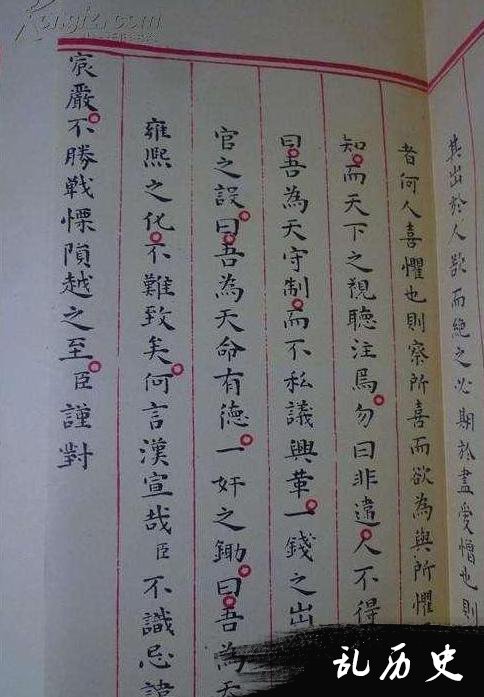 其出於人欲而絶之必期於盡愛憎也則
者何人喜懼也則察所喜而欲為與所懼
知而天下之視聽注焉勿曰非違人不得
曰吾為天守制而不私議興革一錢之出
官之設曰吾為天命有德一奸之鋤曰吾為天
雍熙之化不難致矣何言漢宣哉臣不識忌諱
宸嚴不勝戰慄隕越之至臣謹對
乱历史